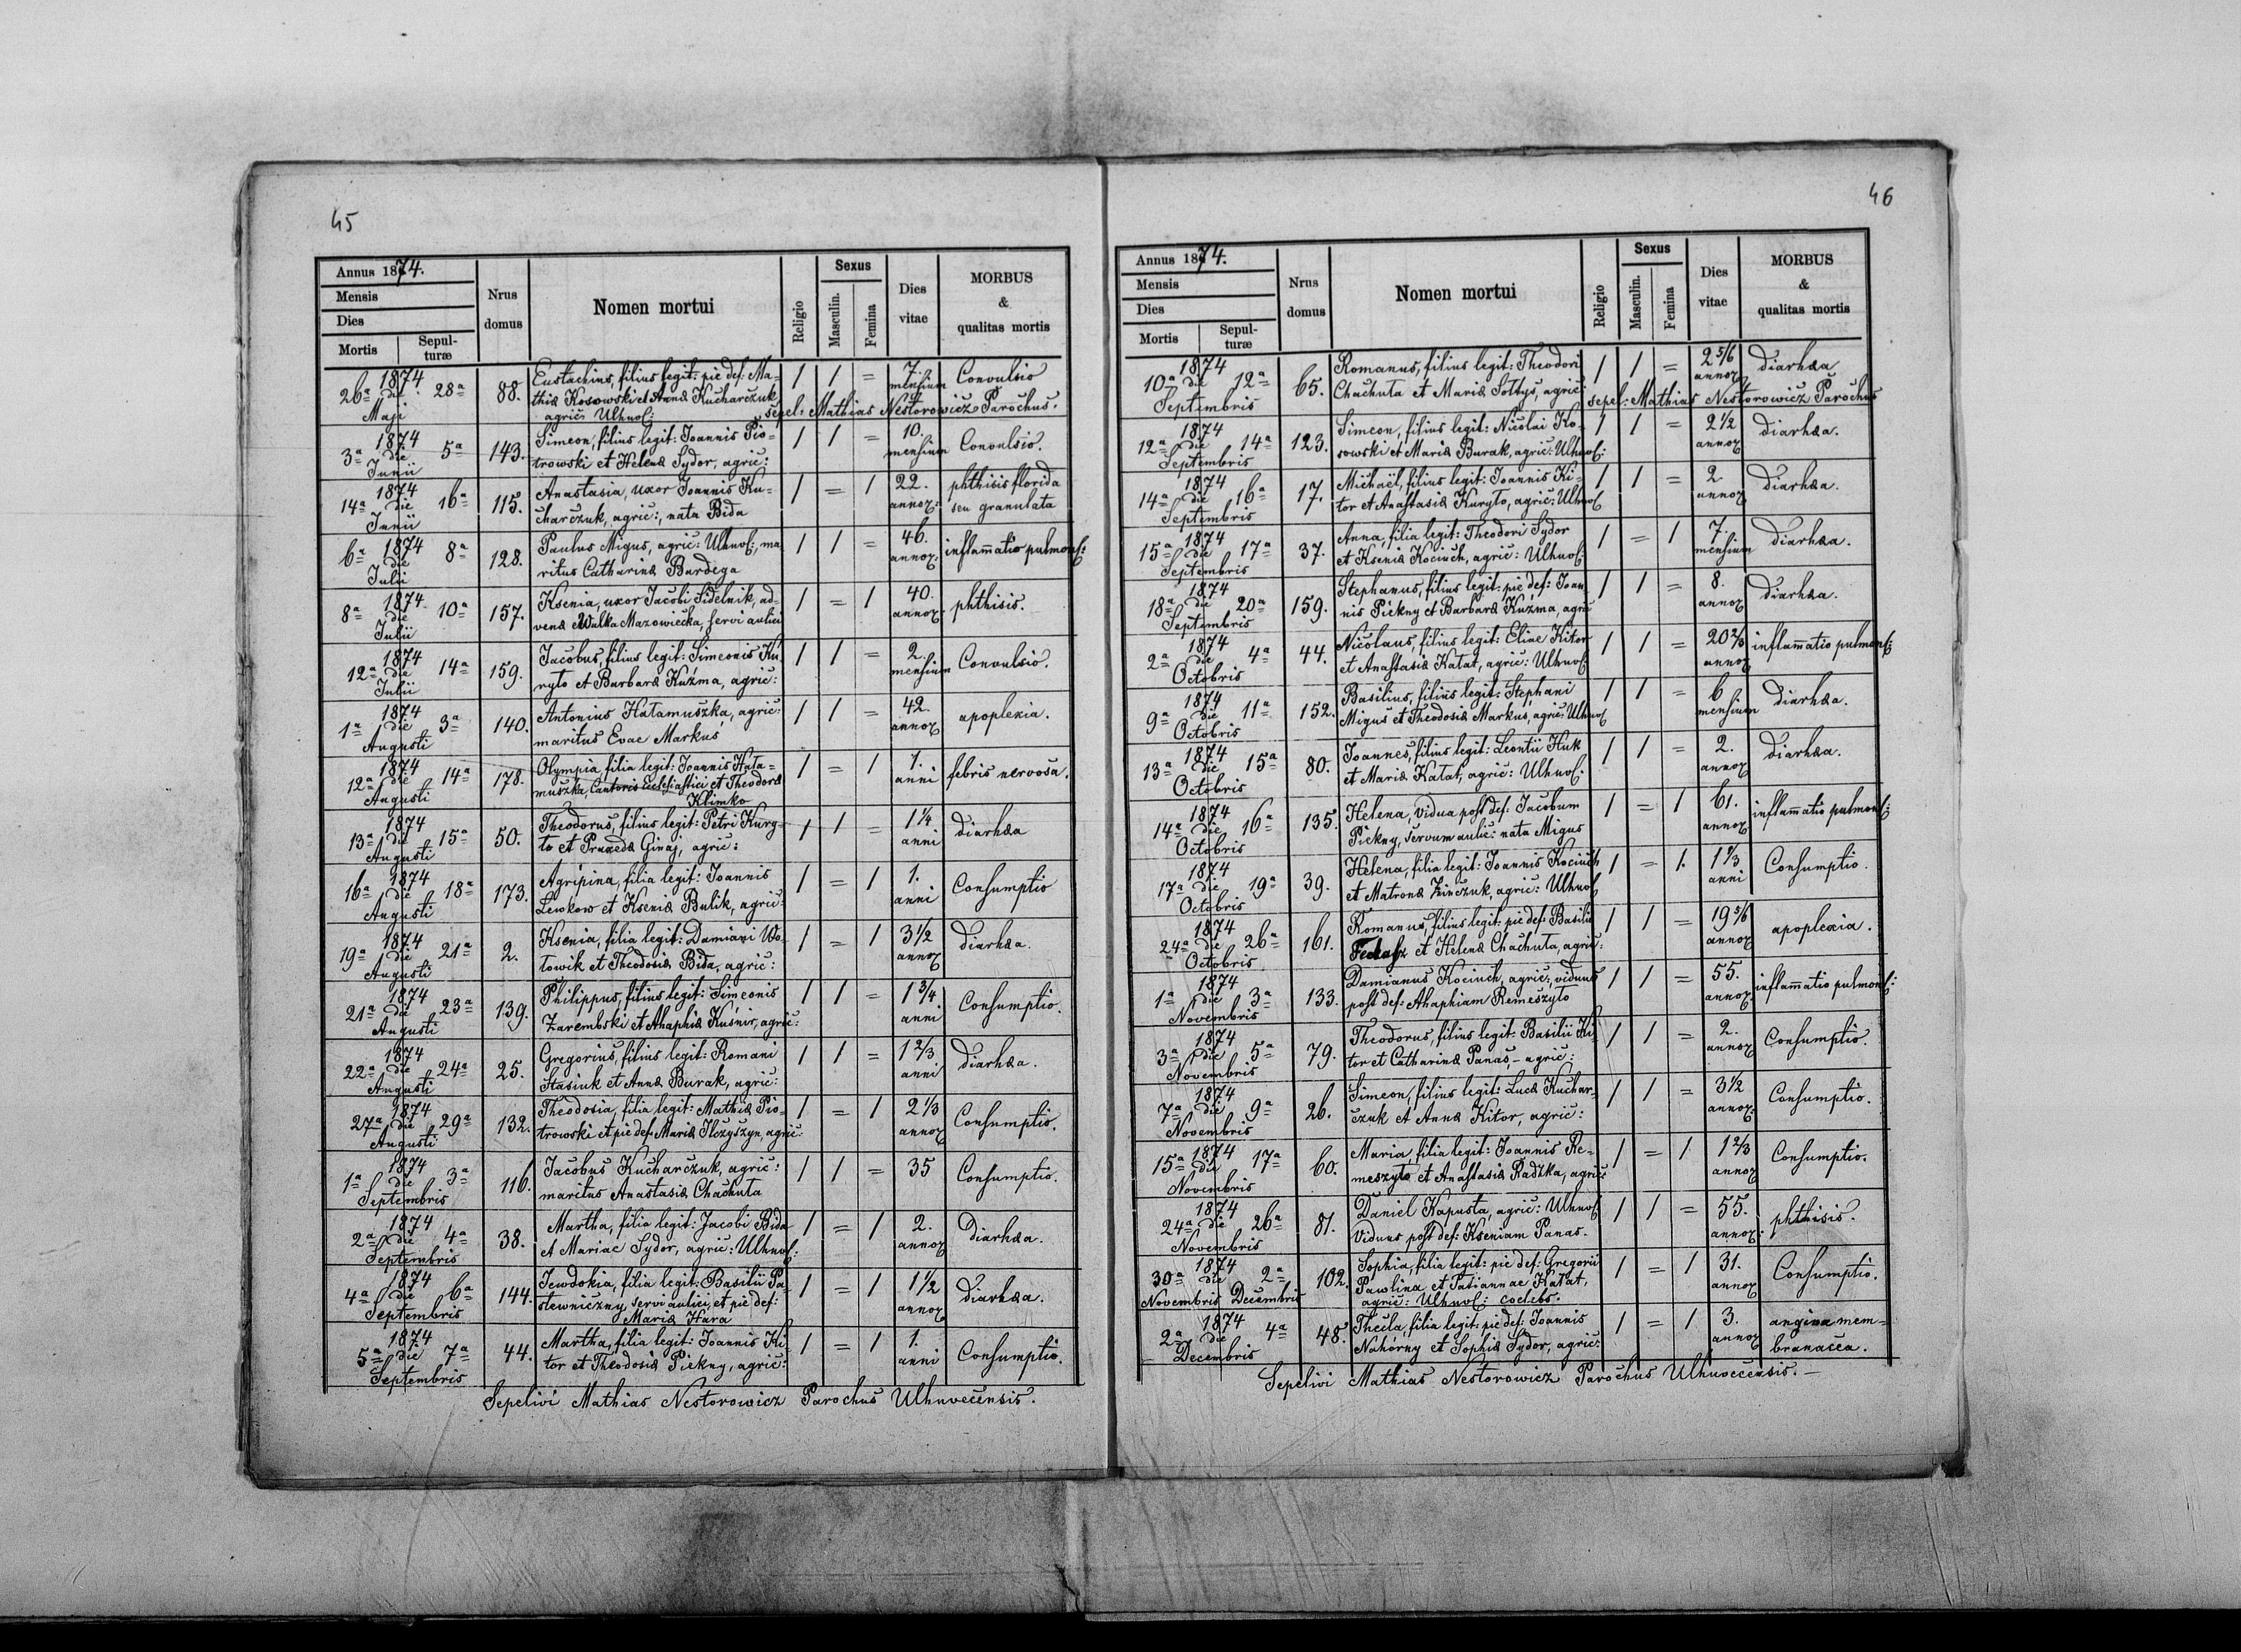 45
Annus 1874.
Mensis
Dies
Mortis
Sepul-
turæ
Nrus
domus
Nomen mortui
Religio
Sexus
Masculin.
Femina
Dies
vitae
MORBUS
&
qualitas mortis
1874
26a die 28a
Maji
88.
Eustachius, filius legit: pie def: Ma-
thiæ Kosowski et Annæ Kucharczuk
agric: Uhnov:
1 1 =
7.
mensium
Convulsio
sepel: Mathias Nestorowicz Parochus.
1874
3a die 5a
Junii
143.
Simeon, filius legit: Joannis Pio-
trowski et Helenæ Sydor, agric:
1 1 =
10.
mensium
Convulsio.
1874
14a die 16a
Junii
115.
Anastasia, uxor Joannis Ku-
charczuk, agric:, nata Bida
1 = 1
22.
annor:
phthisis florida
seu granulata
1874
6a die 8a
Julii
128.
Paulus Migus, agric: Uhnov:, ma
ritus Catharinæ Burdega
1 1 =
46.
annor:
inflamatio pulmon:
1874
8a die 10a
Julii
157.
Ksenia, uxor Jacobi Sidelnik, ad-
vena e Wulka Mazowiecka, servi aulici
1 = 1
40.
annor:
phthisis.
1874
12a die 14a
Julii
159.
Jacobus, filius legit: Simeonis Ku
ryło et Barbaræ Kuźma, agric:
1 1 =
2.
mensium
Convulsio.
1874
1a die 3a
Augusti
140.
Antonius Hałamuszka, agric:
maritus Evae Markus
1 1 =
42.
annor
apoplexia.
1874
12a die 14a
Augusti
178.
Olympia, filia legit: Joannis Hała-
muszka, Cantoris Ecclesiastici et Theodoræ
Klimko
1 = 1
1.
anni
febris nervosa.
1874
13a die 15a
Augusti
50.
Theodorus, filius legit: Petri Kury-
ło et Praxedæ Ginaj, agric:
1 1 =
1 1/4
anni
diarhæa
1874
16a die 18a
Augusti
173.
Agripina, filia legit: Joannis
Lewkow et Kseniæ Bulik, agric:
1 = 1
1.
anni
Consumptio
1874
19a die 21a
Augusti
2.
Ksenia, filia legit: Damiani Wo-
łowik et Theodosiæ Bida, agric:
1 = 1
3 1/2
annor
diarhæa.
1874
21a die 23a
Augusti
139.
Philippus, filius legit: Simeonis
Zarembski et Ahaphiæ Kuśnir, agric:
1 1 =
1 3/4
anni
Consumptio.
1874
22a die 24a
Augusti
25.
Gregorius, filius legit: Romani
Stasiuk et Annæ Burak, agric:
1 1 =
1 2/3
anni
diarhæa.
1874
27a die 29a
Augusti
132.
Theodosia, filia legit: Mathiæ Pio-
trowski et pie def: Mariæ Ilczyszyn, agric:
1 = 1
2 1/3
annor
Consumptio.
1874
1a die 3a
Septembris
116.
Jacobus Kucharczuk, agric:
maritus Anastasiæ Chachuta
1 1 =
35
Consumptio.
1874
2a die 4a
Septembris
38.
Martha, filia legit: Jacobi Bida
et Mariae Sydor, agric: Uhnov:
1 = 1
2.
annor
Diarhæa.
1874
4a die 6a
Septembris
144.
Jewdokia, filia legit: Basilii Pa-
stewniczny, servi aulici, et pie def:
Mariæ Hara
1 = 1
1 1/2
annor
diarhæa.
1874
5a die 7a
Septembris
44.
Martha, filia legit: Joannis Ki-
tor et Theodosiæ Piekny, agric:
1 = 1
1.
anni
Consumptio.
Sepelivi Mathias Nestorowicz Parochus Ulhuvecensis.
46
Annus 1874.
Mensis
Dies
Mortis
Sepul-
turæ
Nrus
domus
Nomen mortui
Religio
Sexus
Masculin.
Femina
Dies
vitae
MORBUS
&
qualitas mortis
1874
10a die 12a
Septembris
65.
Romanus, filius legit: Theodori
Chachuta et Mariæ Sołtys, agric:
1 1 =
2 5/6
annor
diarhæa
sepel: Mathias Nestorowicz Parochus
1874
12a die 14a
Septembris
123.
Simeon, filius legit: Nicolai Ko-
sowski et Mariæ Burak, agric: Ulhuv:
1 1 =
2 1/2
annor
diarhæa.
1874
14a die 16a
Septembris
17.
Michaël, filius legit: Joannis Ki-
tor et Anastasiæ Kuryło, agric: Ulhuv
1 1 =
2
annor
diarhæa.
1874
15a die 17a
Septembris
37.
Anna, filia legit: Theodori Sydor
et Kseniæ Kociuch, agric: Ulhuv:
1 = 1
7.
mensium
diarhæa.
1874
18a die 20a
Septembris
159.
Stephanus, filius legit: pie def: Joan
nis Piekny et Barbaræ Kuźma, agric
1 1 =
8.
annor
diarhæa.
1874
2a die 4a
Octobris
44.
Nicolaus, filius legit: Eliae Kitor
et Anastasiæ Kałat, agric: Ulhuv:
1 1 =
annor
inflamatio pulmon:
1874
9a die 11a
Octobris
152.
Basilius, filius legit: Stephani
Migus et Theodosiæ Markus, agric: Ulhuv
1 1 =
6
mensium
diarhæa.
1874
13a die 15a
Octobris
80.
Joannes, filius legit: Leontii Huk
et Mariæ Kałat, agric: Ulhuv:
1 1 =
2.
annor
diarhæa.
1874
14a die 16a
Octobris
135.
Helena, vidua post def: Jacobum
Piekny, servum aulic: nata Migus
1 = 1
61.
annor
inflamatio pulmon:
1874
17a die 19a
Octobris
39.
Helena, filia legit: Joannis Kociuch
et Matronæ Zinczuk, agric: Ulhuv
1 = 1.
1 1/3
anni
Consumptio.
1874
24a die 26a
Octobris
161.
Romanus, filius legit: pie def: Basilii
Fedasz et Helenæ Chachuta, agric:
1 1 =
19 5/6
annor
apoplexia.
1874
1a die 3a
Novembris
133.
Damianus Kociuch, agric:, viduus
post def: Ahaphiam Remeszyło
1 1 =
55.
annor
inflamatio pulmon:
1874
3a die 5a
Novembris
79.
Theodorus, filius legit: Basilii Ki
tor et Catharinæ Panas, - agric:
1 1 =
2.
annor
Consumptio.
1874
7a die 9a
Novembris
26.
Simeon, filius legit: Lucæ Kuchar-
czuk et Annæ Kitor, agric:
1 1 =
3 1/2
annor:
Consumptio.
1874
15a die 17a
Novembris
60.
Maria, filia legit: Joannis Re-
meszyło et Anastasiæ Radzka, agric:
1 = 1
1 2/3
annor
Consumptio.
1874
24a die 26a
Novembris
81.
Daniel Kapusta, agric: Ulhuv
Viduus post def: Kseniam Panas.
1 1 =
55.
annor:
phthisis.
1874
30a die 2a
Novembris Decembris
102.
Sophia, filia legit: pie def: Gregorii
Pawlina et Tatiannae Kałat,
agric: Ulhuv: coelebs.
1 = 1
31.
annor
Consumptio.
1874
2a die 4a
Decembris
48.
Thecla, filia legit: pie def: Joannis
Nahórny et Sophiæ Sydor, agric:
1 = 1
3.
annor
angina mem-
branacea.
Sepelivi Mathias Nestorowicz Parochus Ulhuvecensis. -